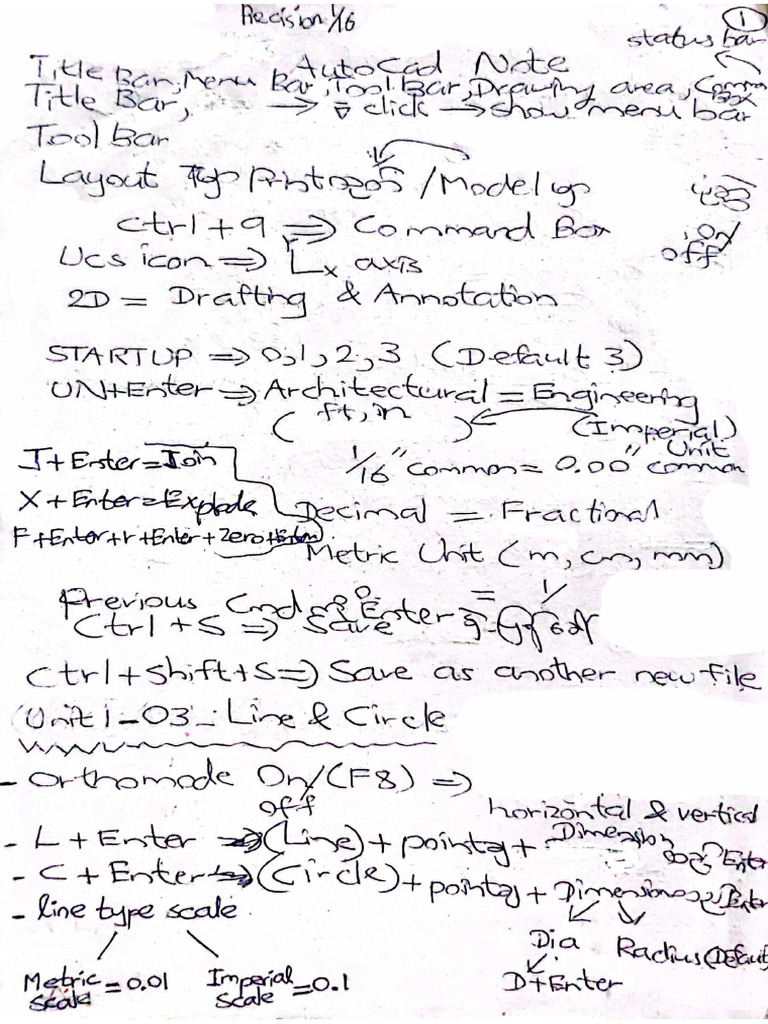 Recision 1/16
①
status bar
AutoCad Note
Title Bar, Menu Bar, Tool Bar, Drawing area, Common Box
Title Bar, → click → show menu bar
Tool Bar
Layout / Model
Ctrl + 9 ⇒ Command Box
on/off
Ucs icon ⇒ x axis
2D = Drafting & Annotation
STARTUP ⇒ 0, 1, 2, 3 (Default 3)
UN+Enter ⇒ Architectural = Engineering
(ft, in) (Imperial) Unit
J + Enter = Join
1/16" common = 0.00" common
X + Enter = Explode
Decimal = Fractional
F+Enter+r+Enter+Zero+Enter
Metric Unit (m, cm, mm)
Previous Cmd Enter
Ctrl + S ⇒ Save
Ctrl + Shift + S ⇒ Save as another new file
Unit 1 - 03 - Line & Circle
- Orthomode On/off (F8) ⇒ horizontal & vertical
- L + Enter ⇒ (Line) + point + Dimension Enter
- C + Enter ⇒ (Circle) + point + Dimension Enter
- line type scale
Dia Radius (Default)
Metric scale = 0.01 Imperial scale = 0.1 D+Enter